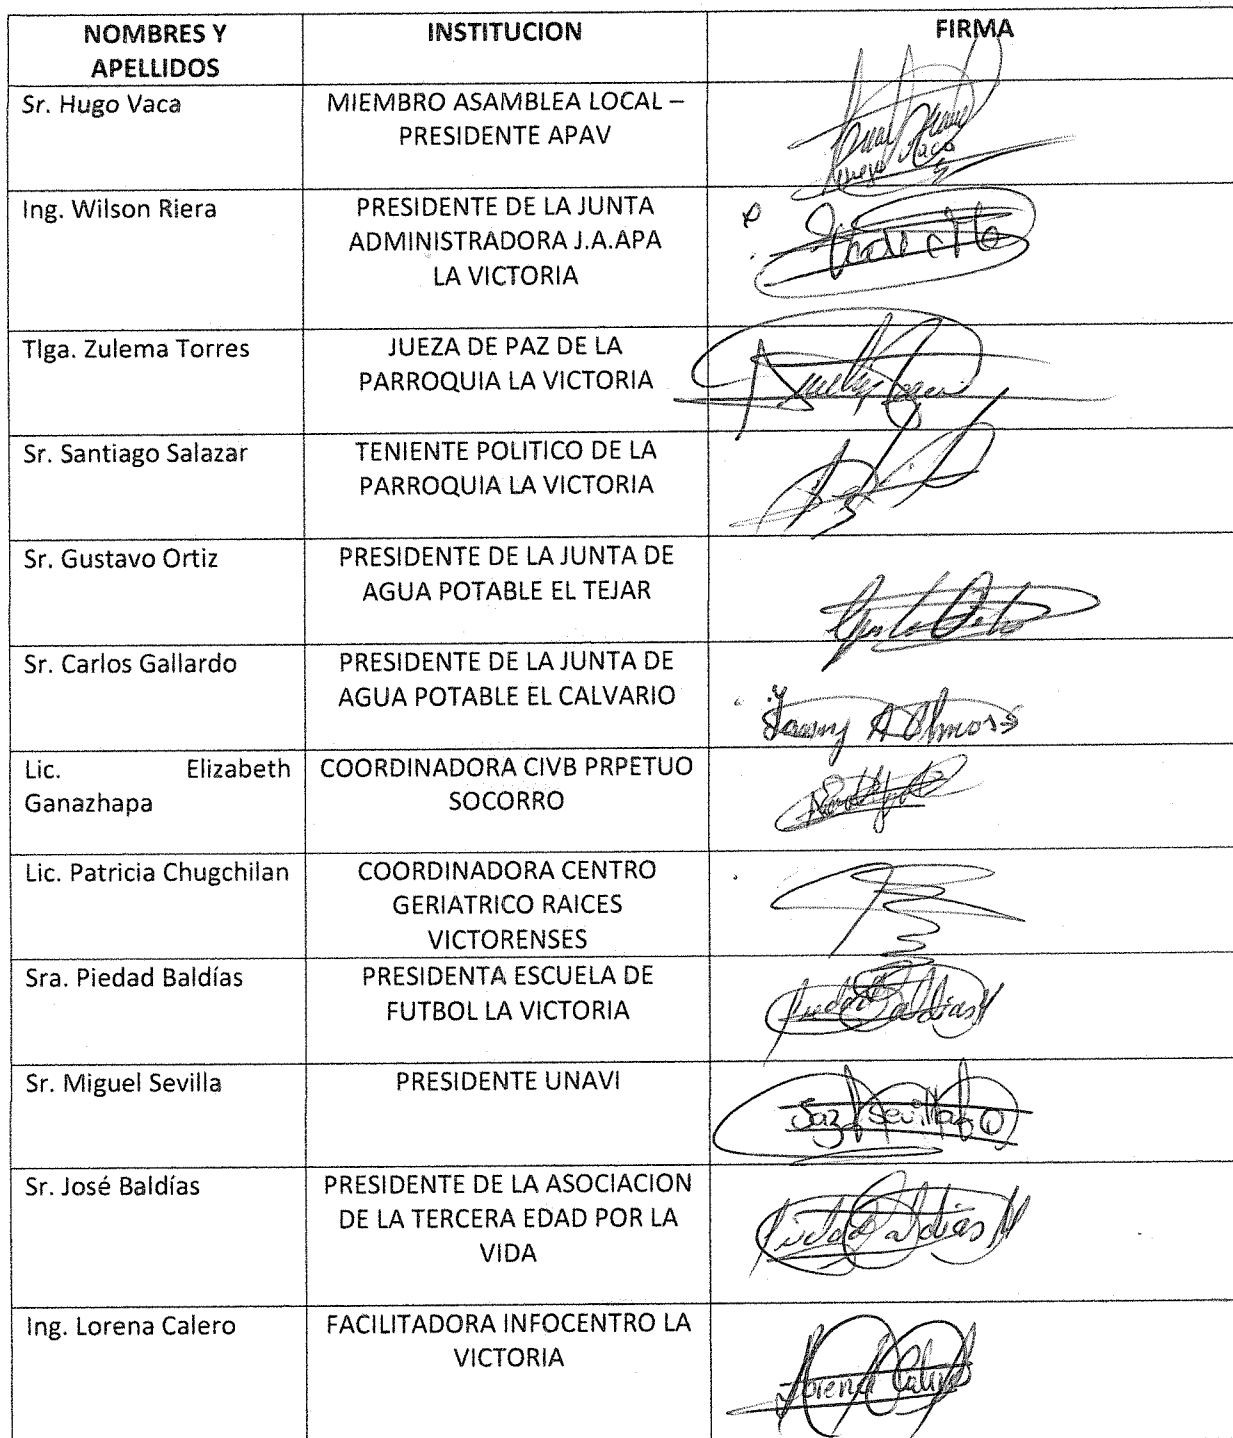 NOMBRES Y
APELLIDOS
INSTITUCION
FIRMA
Sr. Hugo Vaca
MIEMBRO ASAMBLEA LOCAL –
PRESIDENTE APAV
Hugo Vaca
Ing. Wilson Riera
PRESIDENTE DE LA JUNTA
ADMINISTRADORA J.A.APA
LA VICTORIA
Tlga. Zulema Torres
JUEZA DE PAZ DE LA
PARROQUIA LA VICTORIA
Sr. Santiago Salazar
TENIENTE POLITICO DE LA
PARROQUIA LA VICTORIA
Sr. Gustavo Ortiz
PRESIDENTE DE LA JUNTA DE
AGUA POTABLE EL TEJAR
Sr. Carlos Gallardo
PRESIDENTE DE LA JUNTA DE
AGUA POTABLE EL CALVARIO
Lic. Elizabeth
Ganazhapa
COORDINADORA CIVB PRPETUO
SOCORRO
Lic. Patricia Chugchilan
COORDINADORA CENTRO
GERIATRICO RAICES
VICTORENSES
Sra. Piedad Baldías
PRESIDENTA ESCUELA DE
FUTBOL LA VICTORIA
Piedad Baldias M
Sr. Miguel Sevilla
PRESIDENTE UNAVI
Sevilla
Sr. José Baldías
PRESIDENTE DE LA ASOCIACION
DE LA TERCERA EDAD POR LA
VIDA
Piedad Baldias M
Ing. Lorena Calero
FACILITADORA INFOCENTRO LA
VICTORIA
Lorena Calero